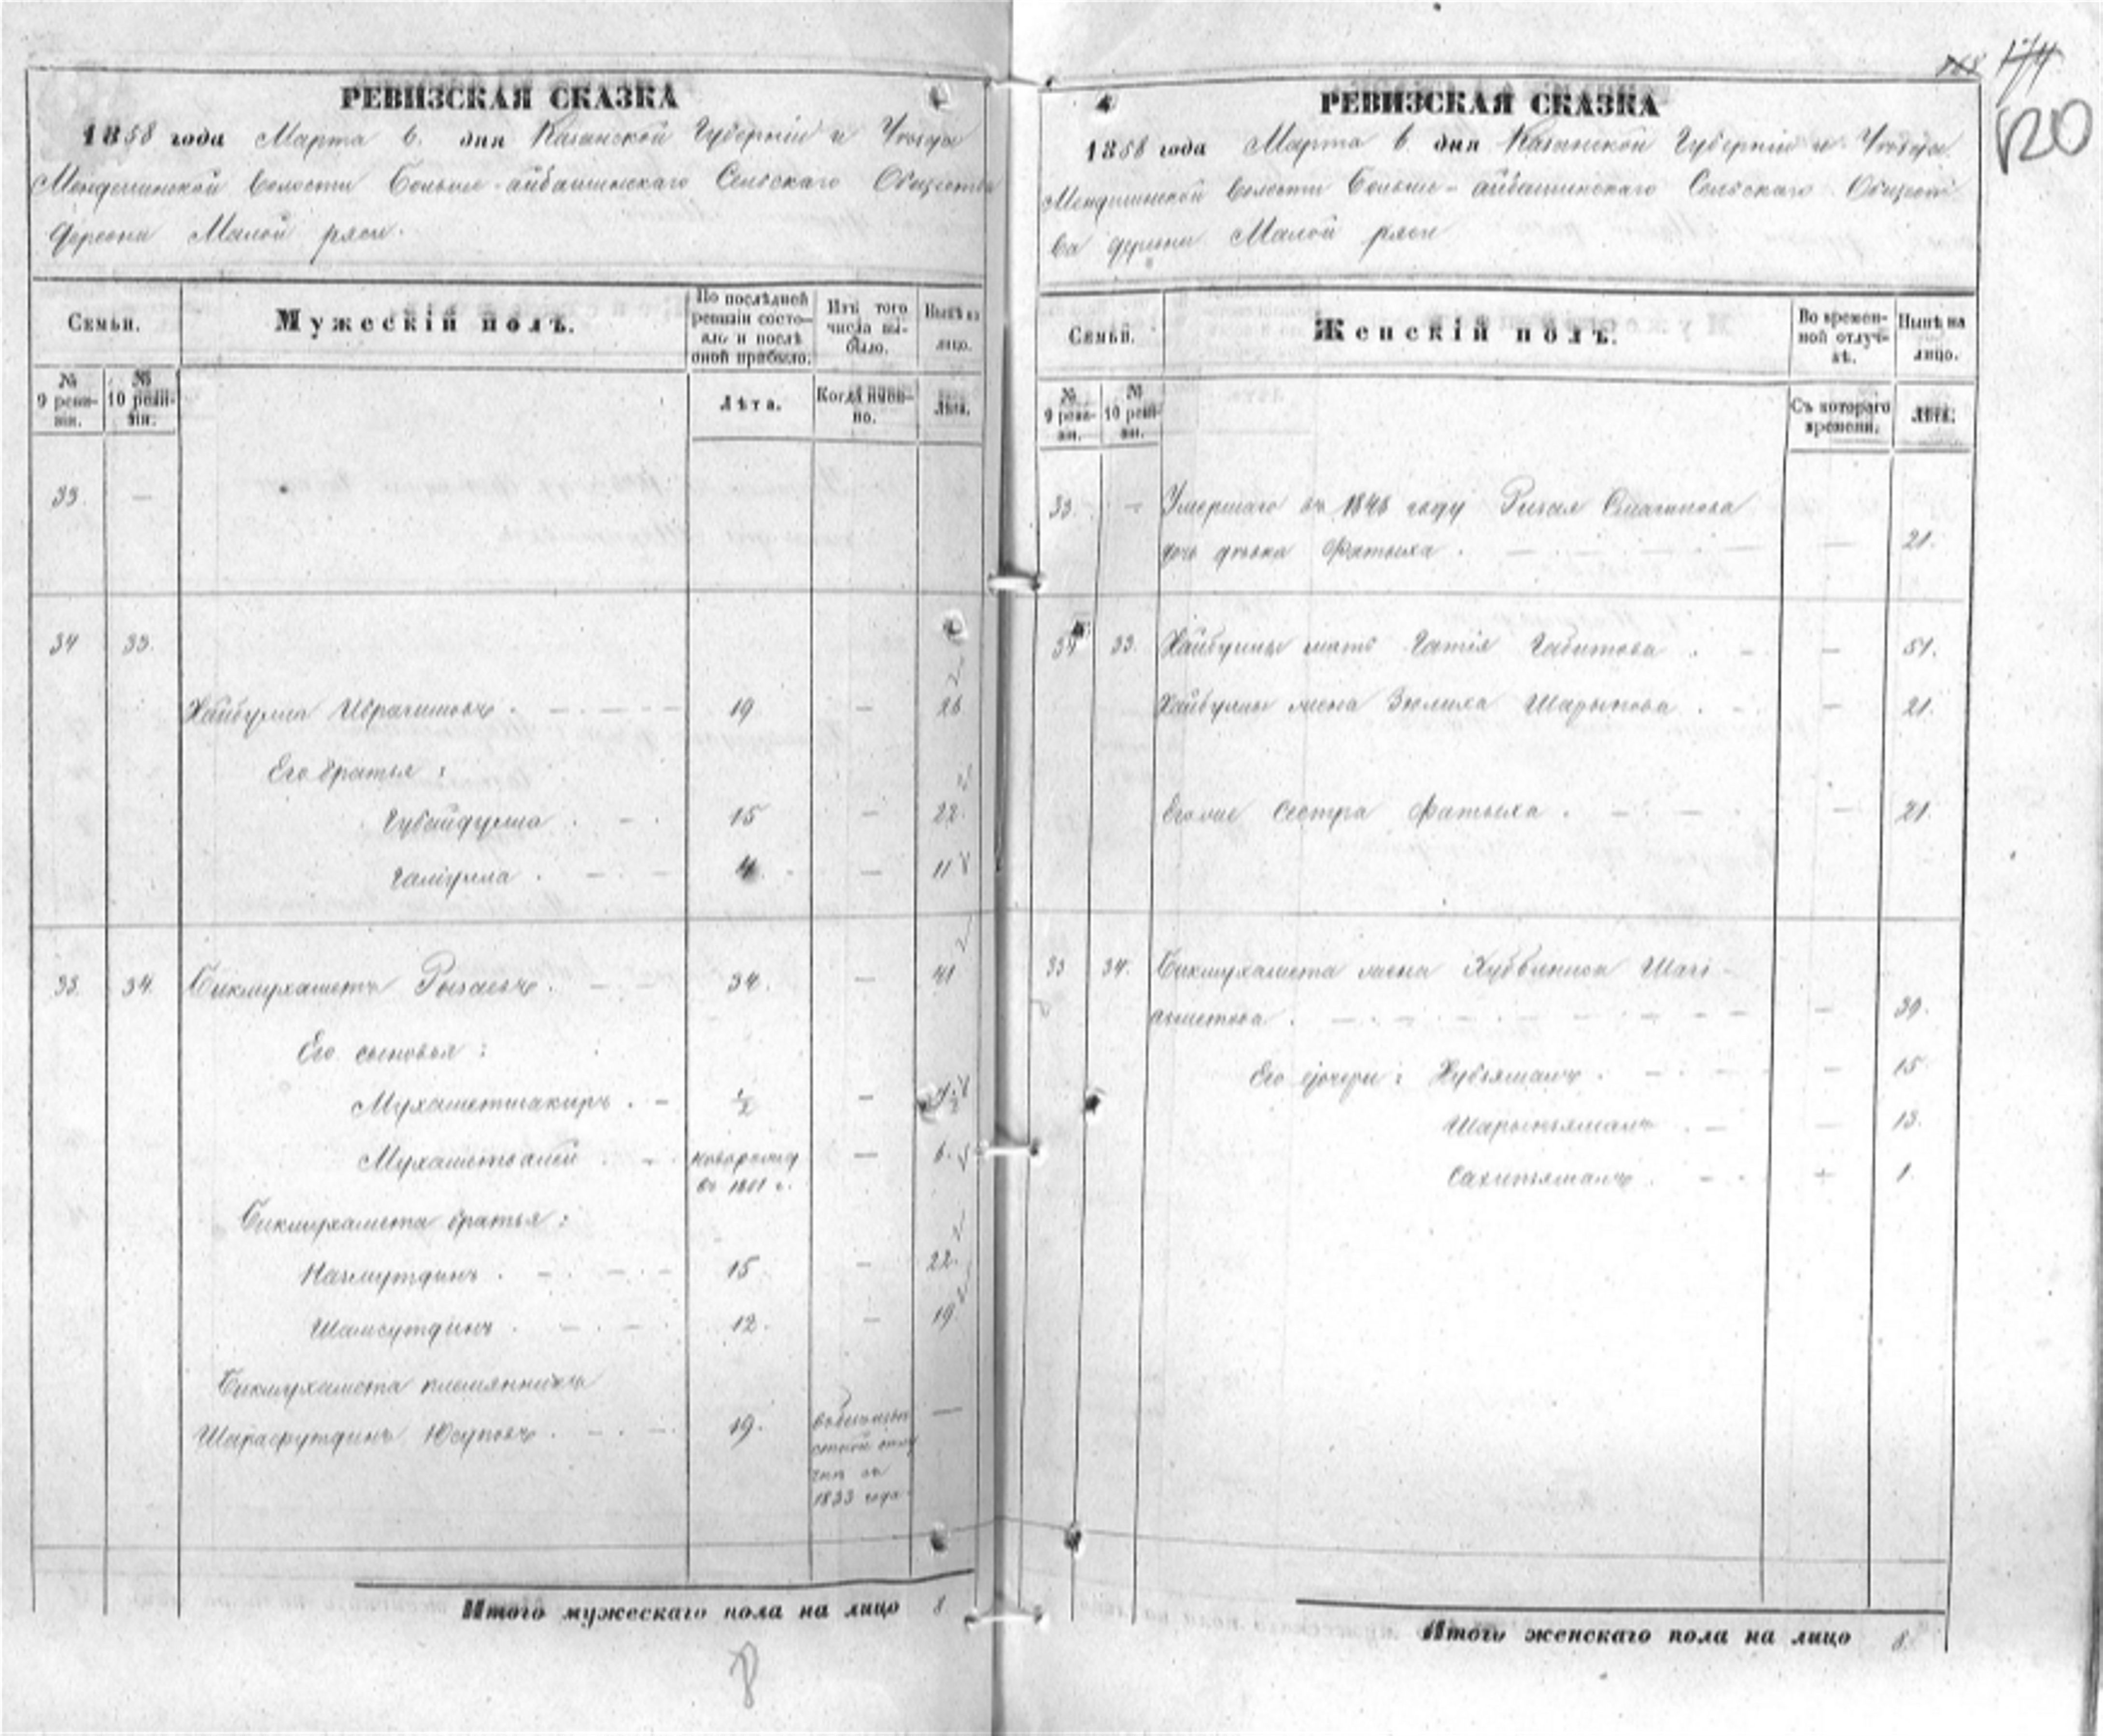 174
120
РЕВИЗСКАЯ СКАЗКА
1858 года Марта 6. дня Казанской Губерніи и Уѣзда
Мендюшской волости Больше-айбашинскаго Сельскаго Общества
деревни Малой ряси.
Семьи.
Мужескій полъ.
По послѣдней ревизіи состояло и послѣ оной прибыло.
Изъ того числа выбыло.
Нынѣ на лицо.
№ 9 ревизіи.
№ 10 ревизіи.
Лѣта.
Когда именно.
Лѣта.
33. —
34 33.
Хайбулла Ибрагимовъ. 19 — 26
Его братья:
Губайдулла. 15 — 22.
Галіулла. 4. — 11
35. 34. Бикмухаметъ Рызаевъ. 34. — 41
Его сыновья:
Мухаметшакиръ. ½ — 7½
Мухаметвалей. новорожд — 6.
въ 1851 г.
Бикмухамета братья:
Назмутдинъ. 15 — 22.
Шамсутдинъ. 12. — 19
Бикмухамета племянникъ
Шарафутдинъ Юсуповъ. 19. —
1833 года
Итого мужескаго пола на лицо 8
8
РЕВИЗСКАЯ СКАЗКА
1858 года Марта 6 дня Казанской Губерніи и Уѣзда
Мендюшской волости Больше-айбашинскаго Сельскаго Общест
ва деревни Малой ряси
Семьи.
Женскій полъ.
Во временной отлучкѣ.
Нынѣ на лицо.
№ 9 ревизіи.
№ 10 ревизіи.
Съ котораго времени.
Лѣта.
33. — Умершаго въ 1846 году Рызая Смагилова
дочь дѣвка Фатыха. — 21.
34 33. Хайбуллы мать Гатія Габитова. — 51.
Хайбуллы жена Зюлиха Шарыпова. — 21.
Его же сестра Фатыха. — 21.
35 34. Бикмухамета жена Хуббиниса Шагі-
ахметова. — 39.
Его дочери: Хубьямалъ. — 15
Шарыпьямалъ. — 13.
Сахипьямалъ. — 1.
Итого женскаго пола на лицо 8.